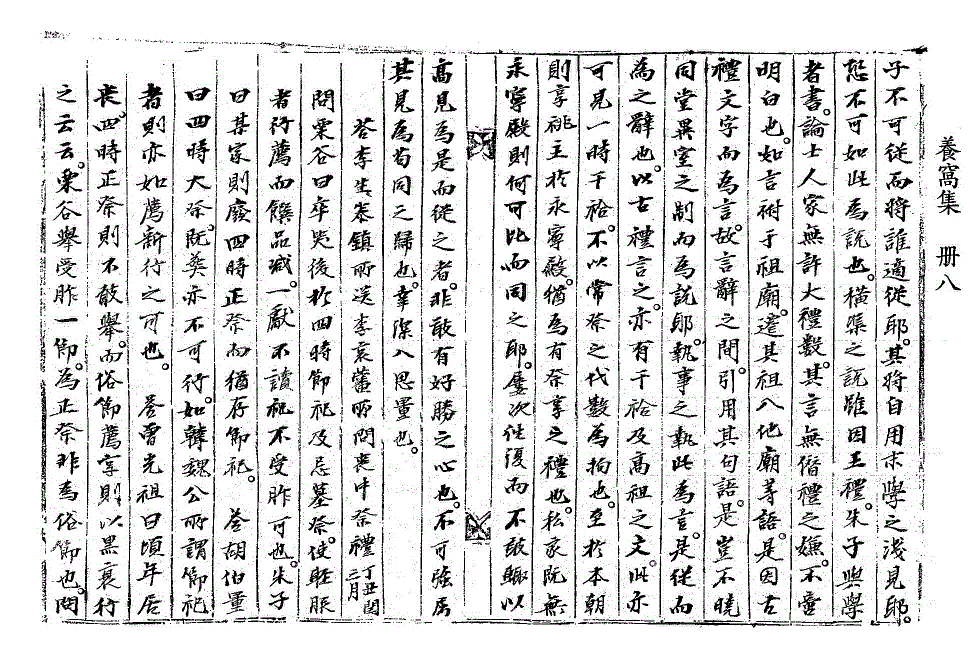 養窩集 冊八
子不可從而將誰適從耶。其將自用末學之淺見耶。
恐不可如此爲說也。橫渠之說雖因王禮。朱子與學
者書。論士人家無許大禮數。其言無僭禮之嫌。不啻
明白也。如言祔于祖廟。遣其祖入他廟等語。是因古
禮文字而爲言。故言辭之間。引用其句語。是豈不曉
同堂異室之制而爲說耶。執事之執此爲言。是從而
爲之辭也。以古禮言之。亦有干祫及高祖之文。此亦
可見一時干祫。不以常祭之代數爲拘也。至於本朝
則享祧主於永寧殿。猶爲有祭享之禮也。私家旣無
永寧殿則何可比而同之耶。屢次往復而不敢輒以
高見爲是而從之者。非敢有好勝之心也。不可強屈
其見爲苟同之歸也。幸深入思量也。
答李生泰鎭所送李哀藎所問喪中祭禮 丁丑閏三月
問栗谷曰卒哭後於四時節祀及忌墓祭。使輕服
者行薦而饌品减。一獻不讀祝不受胙可也。朱子
曰某家則廢四時正祭而猶存節祀。答胡伯量
曰四時大祭。旣葬亦不可行。如韓魏公所謂節祀
者則亦如薦新行之可也。 答曾光祖曰頃年居
喪。四時正祭則不敢擧。而俗節薦享則以黑衰行
之云云。栗谷擧受胙一節。爲正祭非爲俗節也。問